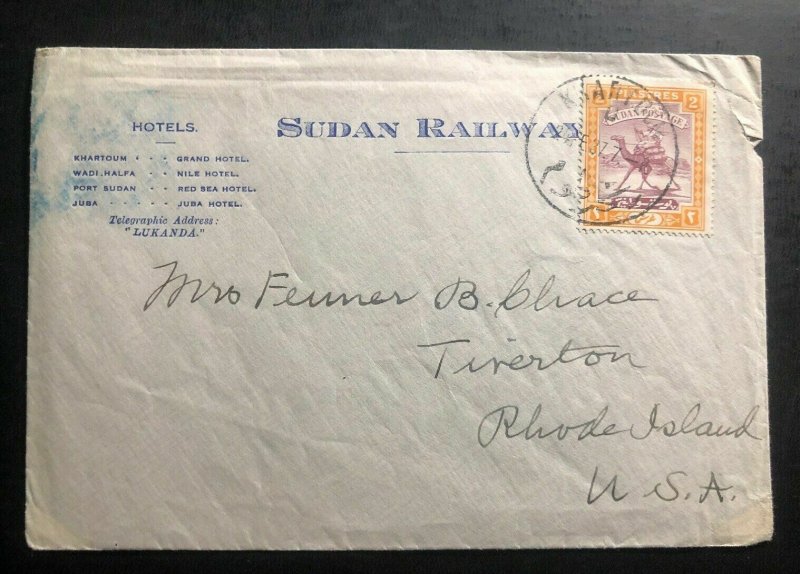 HOTELS.
SUDAN RAILWAY
KHARTOUM - - GRAND HOTEL.
WADI.HALFA - - NILE HOTEL.
PORT SUDAN - - RED SEA HOTEL.
JUBA - - - - - JUBA HOTEL.
Telegraphic Address:
"LUKANDA."
2
SUDAN POSTAGE
KHARTOUM
٢ ٢
Mrs Fenner B. Chace
Tiverton
Rhode Island
U.S.A.